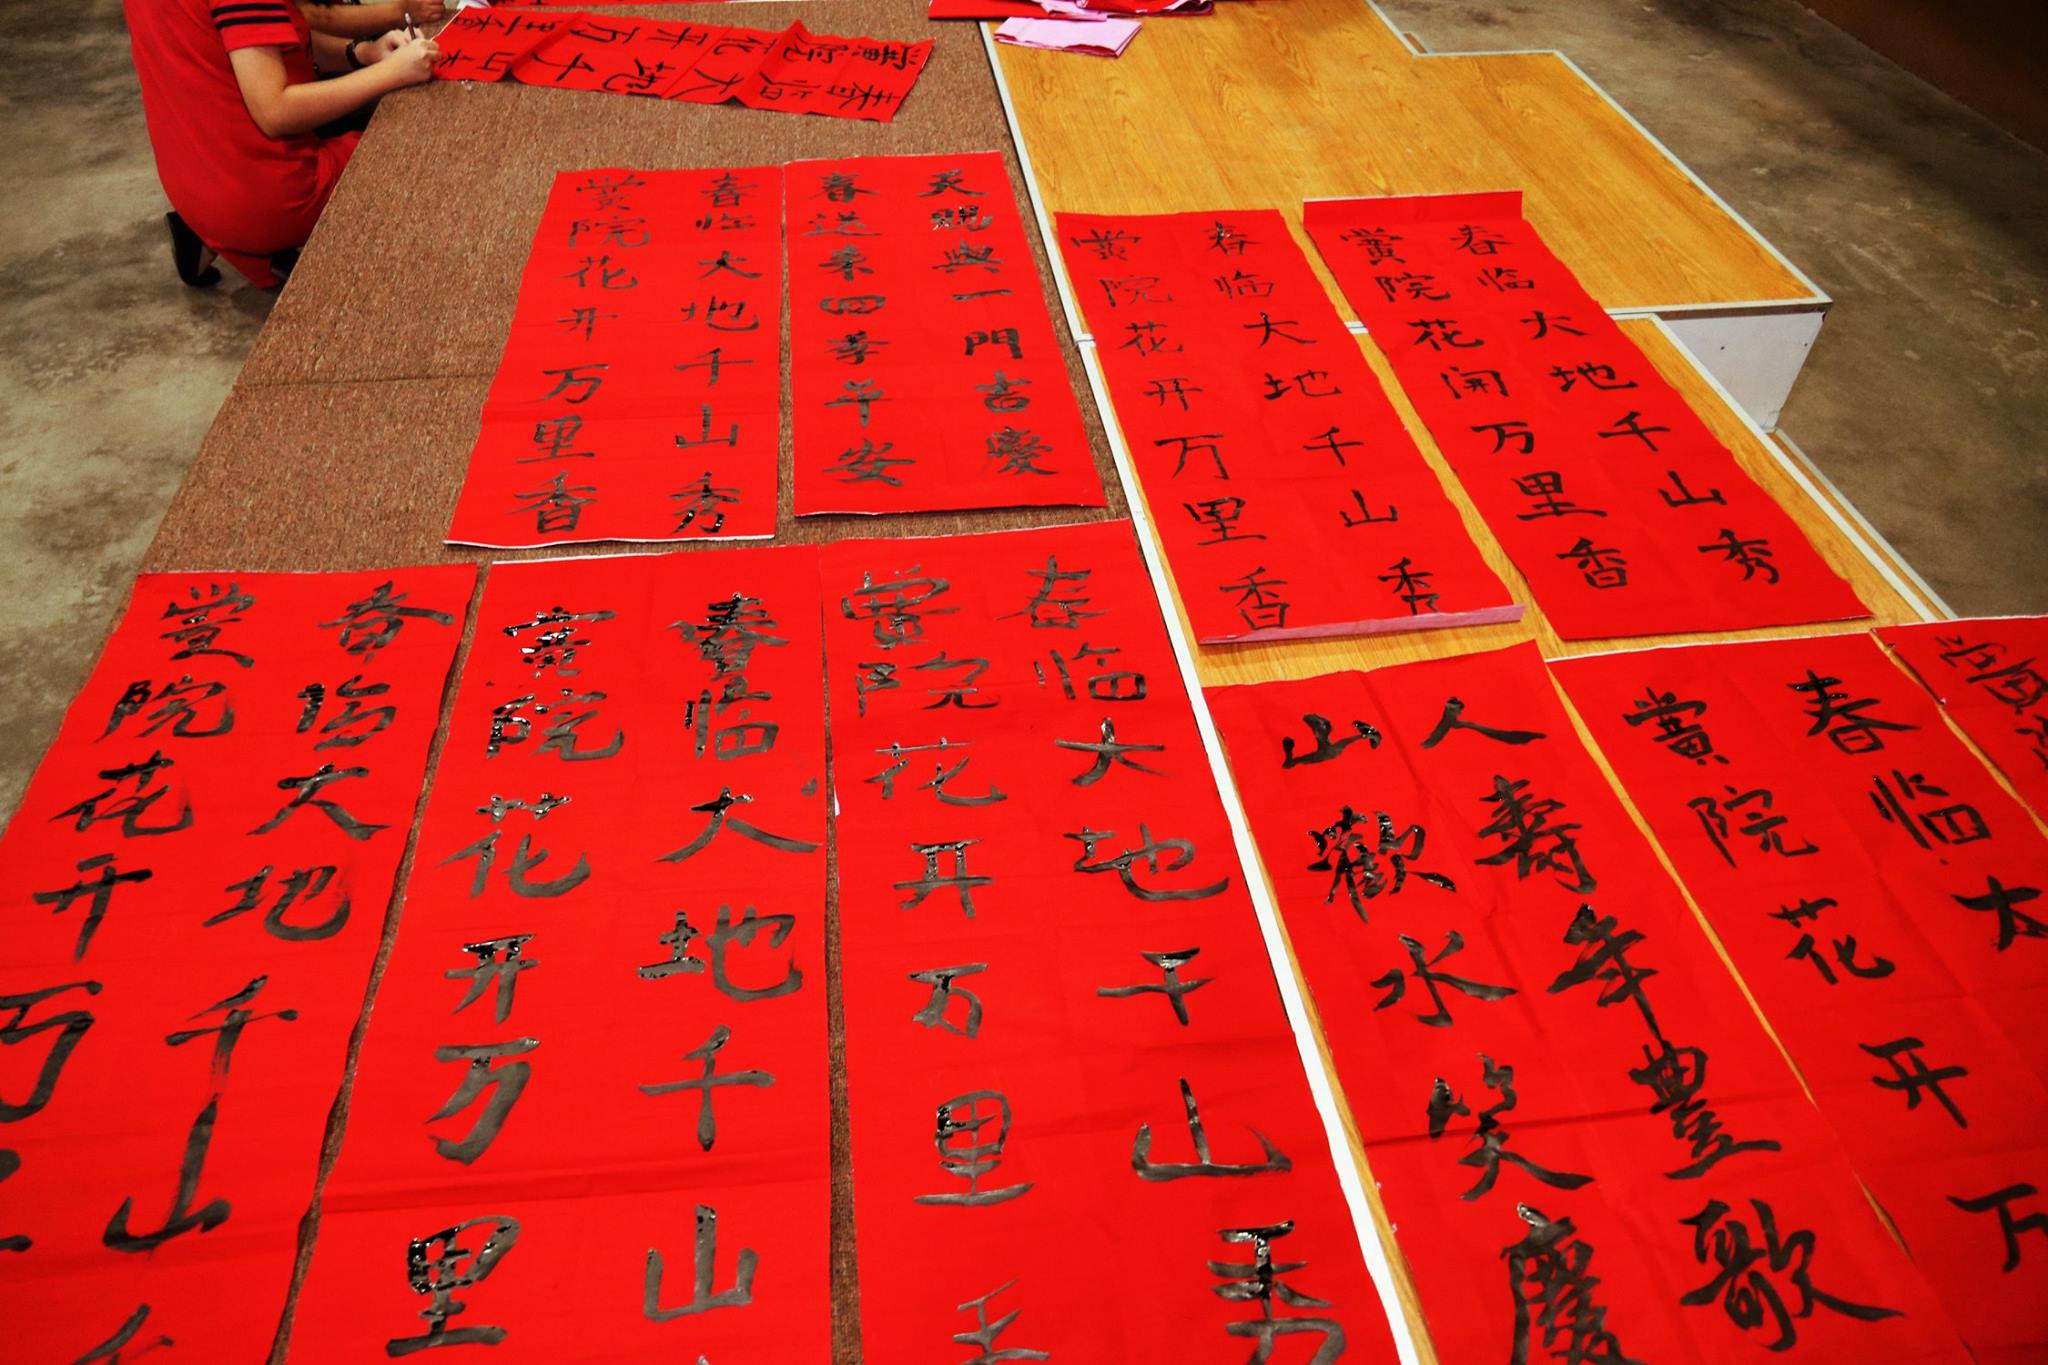 春临大地千山秀
黉院花开万里香
春临大地千山秀
黉院花开万里香
天賜與一門吉慶
春送来四季平安
春临大地千山秀
黉院花开万里香
春临大地千山秀
黉院花開万里香
春临大地千山
黉院花开万
春临大地千山
黉院花开万里
春临大地千山秀
黉院花开万里
人壽年豐歌
山歡水笑慶
春临大
黉院花开万